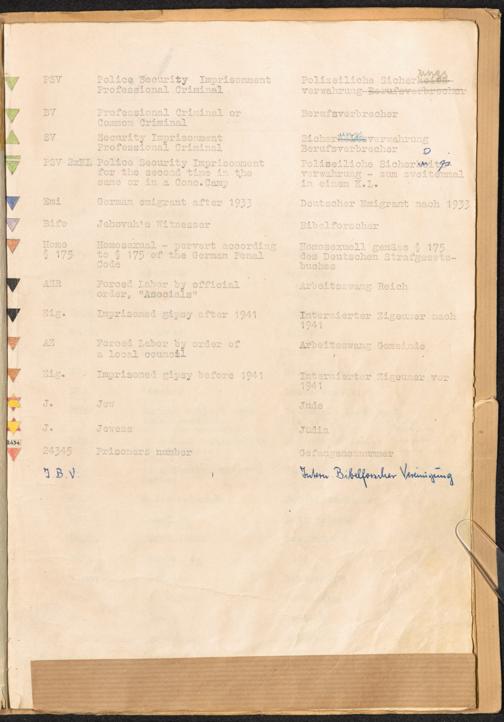 PSV Police Security Imprisonment Polizeiliche Sicherheits
Professional Criminal verwahrung Berufsverbrecher
BV Professional Criminal or Berufsverbrecher
Common Criminal
SV Security Imprisonment Sicherungsverwahrung
Professional Criminal Berufsverbrecher
PSV 2xKL Police Security Imprisonment Polizeiliche
for the second time in the verwahrung - zum zweitenmal
same or in a Conc.Camp in einem K.L.
Emi German emigrant after 1933 Deutscher Emigrant nach 1933
Bifo Jehovah's Witnesser Bibelforscher
Homo Homosexual - pervert according Homosexuell gemäss § 175
§ 175 to § 175 of the German Penal des Deutschen Strafgesetz-
Code buches
AZR Forced Labor by official Arbeitszwang Reich
order, "Asocials"
Zig. Imprisoned gipsy after 1941 Internierter Zigeuner nach
1941
AZ Forced Labor by order of Arbeitszwang Gemeinde
a local council
Zig. Imprisoned gipsy before 1941 Internierter Zigeuner vor
1941
J. Jew Jude
J. Jewess Jüdin
24345 Prisoners number Gefangenennummer
I.B.V. Intern Bibelforscher Vereinigung